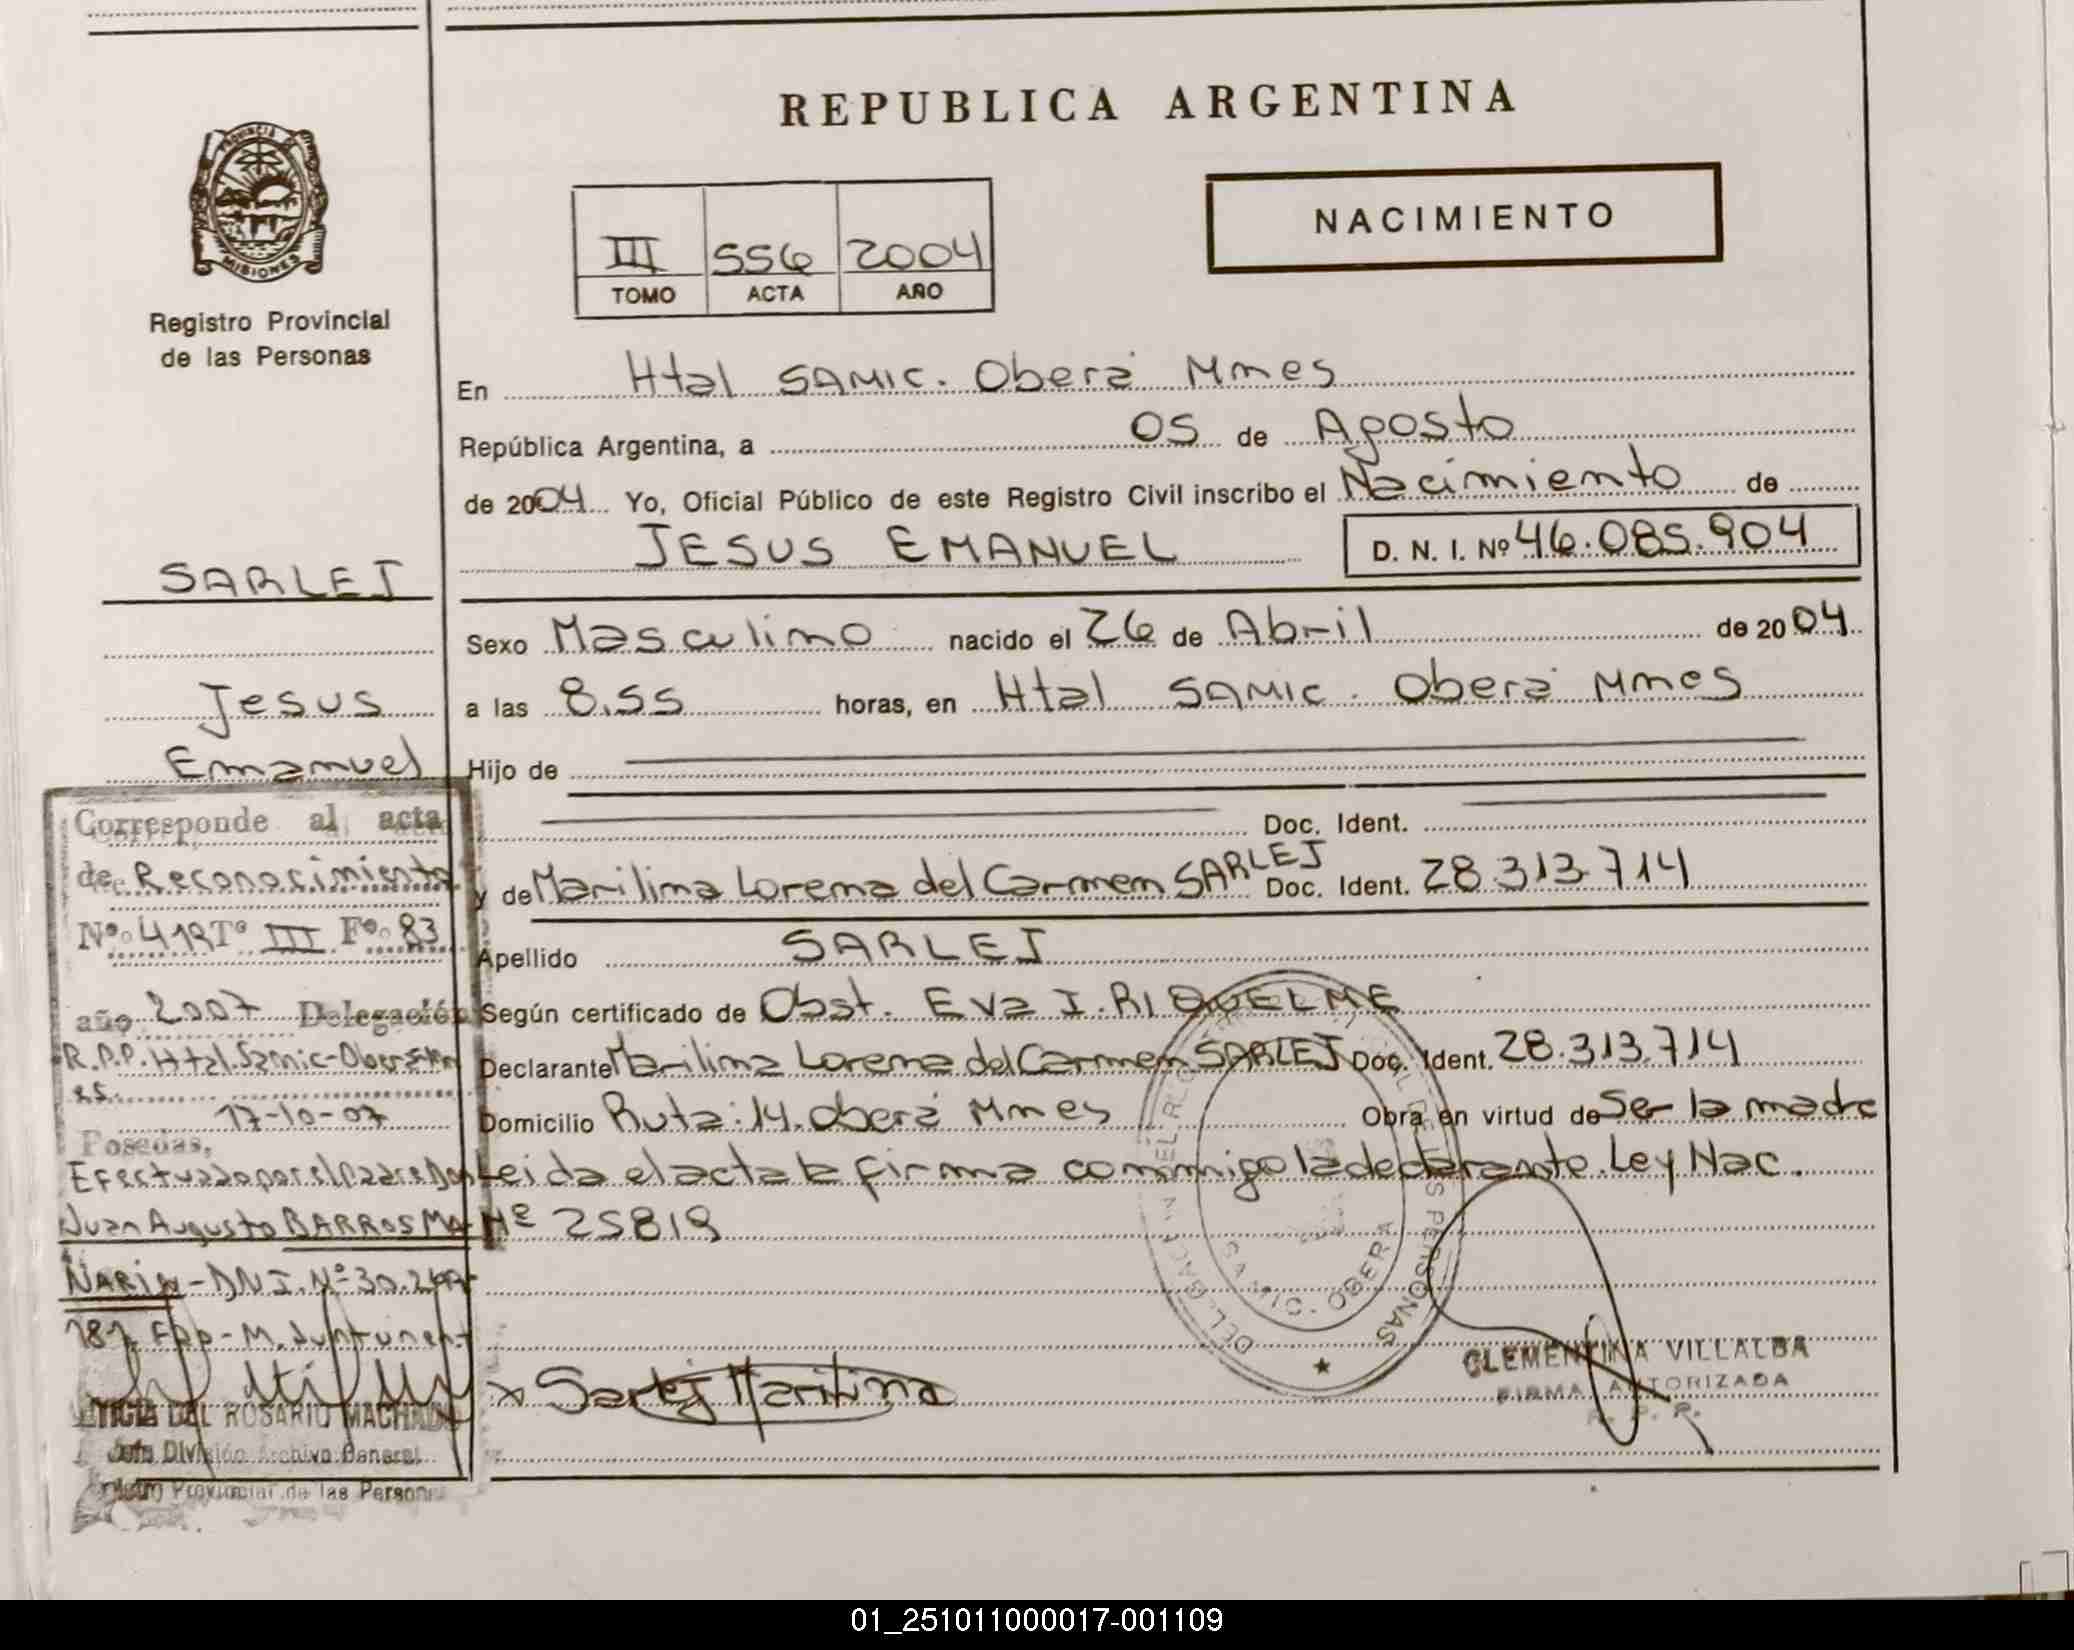 REPUBLICA ARGENTINA
PROVINCIA DE
MISIONES
Registro Provincial
de las Personas
NACIMIENTO
III 556 2004
TOMO ACTA AÑO
En Htal SAMIC. Oberá Mnes
República Argentina, a 05 de Agosto
de 2004 Yo, Oficial Público de este Registro Civil inscribo el Nacimiento de
JESUS EMANUEL D. N. I. Nº 46.085.904
SARLEJ
Jesus
Emanuel
Sexo Masculino nacido el 26 de Abril de 2004
a las 8.55 horas, en Htal SAMIC. Oberá Mnes
Hijo de
Doc. Ident.
y de Marilina Lorena del Carmen SARLEJ Doc. Ident. 28.313.714
Apellido SARLEJ
Según certificado de Obst. Eva I. RIQUELME
Declarante Marilina Lorena del Carmen SARLEJ Doc. Ident. 28.313.714
Domicilio Ruta: 14. Oberá Mnes Obra en virtud de Ser la madre
Leida el acta la firma conmigo la declarante. Ley Nac.
Nº 25819
x Sarlej Marilina
CLEMENTINA VILLALBA
FIRMA AUTORIZADA
R. P. P.
SAMIC - OBERA
Corresponde al acta
de Reconocimiento
Nº 419 Tº III Fº 83
año 2007 Delegación
R.P.P. Htal. Samic-Oberá-Mn
es.
Posadas, 17-10-07
Efectuado por el Padre Don
Juan Augusto BARROS MA
RIN - DNI. Nº 30.
LETICIA DEL ROSARIO MACHADO
Jefa División Archivo General
Registro Provincial de las Personas
01_251011000017-001109